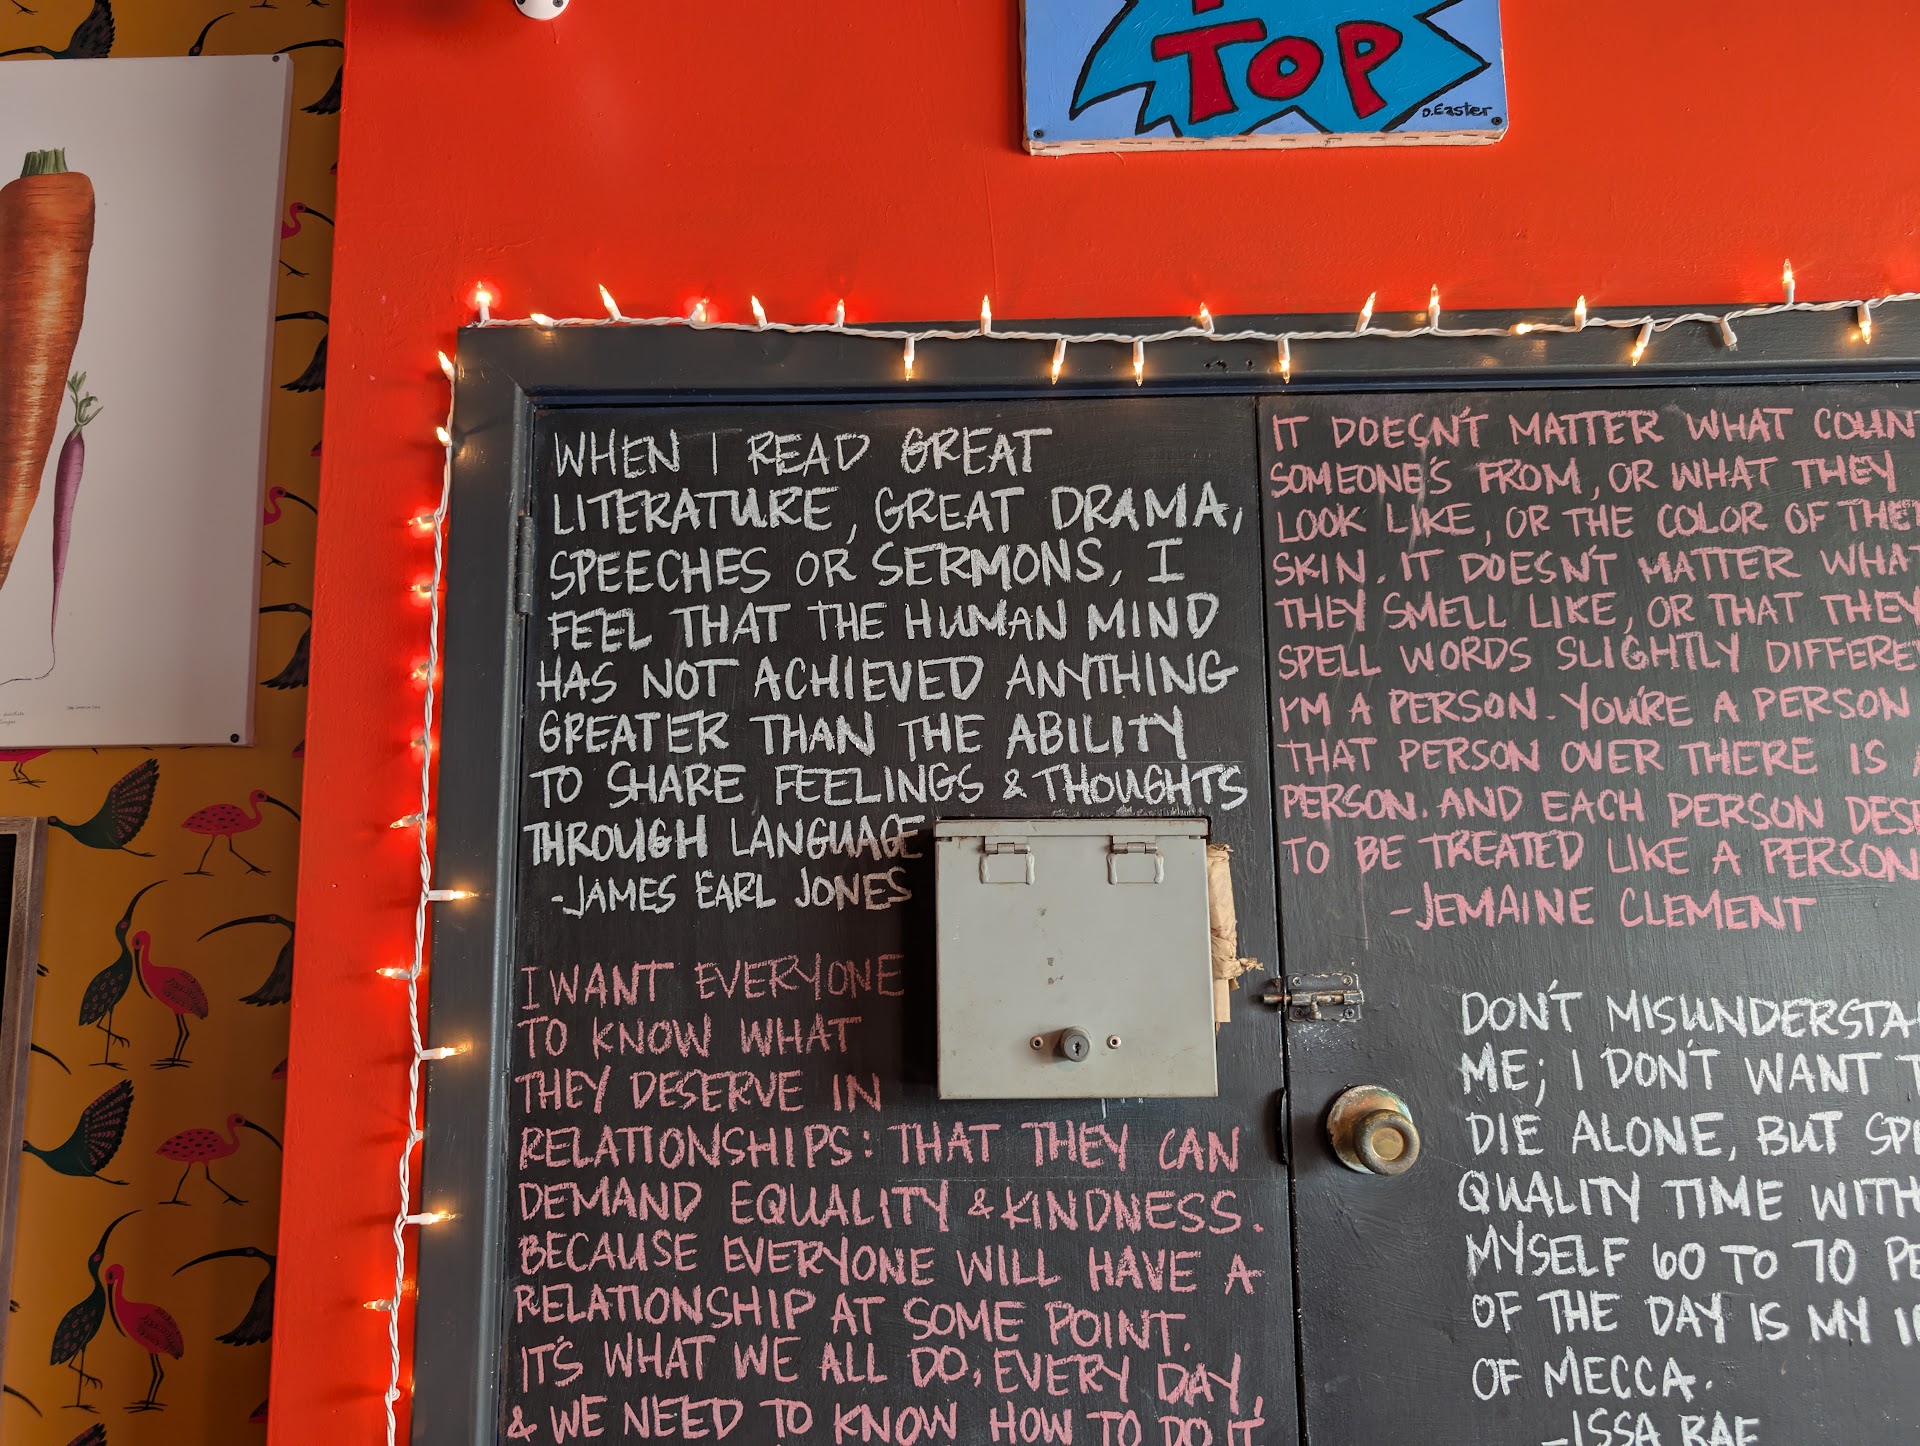 TOP
D.Easter
WHEN I READ GREAT
LITERATURE, GREAT DRAMA,
SPEECHES OR SERMONS, I
FEEL THAT THE HUMAN MIND
HAS NOT ACHIEVED ANYTHING
GREATER THAN THE ABILITY
TO SHARE FEELINGS & THOUGHTS
THROUGH LANGUAGE
-JAMES EARL JONES
I WANT EVERYONE
TO KNOW WHAT
THEY DESERVE IN
RELATIONSHIPS: THAT THEY CAN
DEMAND EQUALITY & KINDNESS.
BECAUSE EVERYONE WILL HAVE A
RELATIONSHIP AT SOME POINT.
IT'S WHAT WE ALL DO, EVERY DAY,
& WE NEED TO KNOW HOW TO DO IT
IT DOESN'T MATTER WHAT COUN
SOMEONE'S FROM, OR WHAT THEY
LOOK LIKE, OR THE COLOR OF THE
SKIN. IT DOESN'T MATTER WHAT
THEY SMELL LIKE, OR THAT THEY
SPELL WORDS SLIGHTLY DIFFERE
I'M A PERSON. YOU'RE A PERSON
THAT PERSON OVER THERE IS A
PERSON. AND EACH PERSON DES
TO BE TREATED LIKE A PERSON
-JEMAINE CLEMENT
DON'T MISUNDERSTA
ME; I DON'T WANT T
DIE ALONE, BUT SPE
QUALITY TIME WITH
MYSELF 60 TO 70 PE
OF THE DAY IS MY I
OF MECCA.
-ISSA RAE